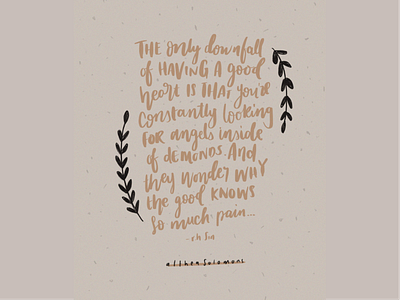 THE only downfall
of HAVING A good
heart IS THAT you're
constantly looking
FOR angels inside
of demonds. And
they wonder WHY
the good KNOWS
so much pain...
- r.h Sin
althea solomons